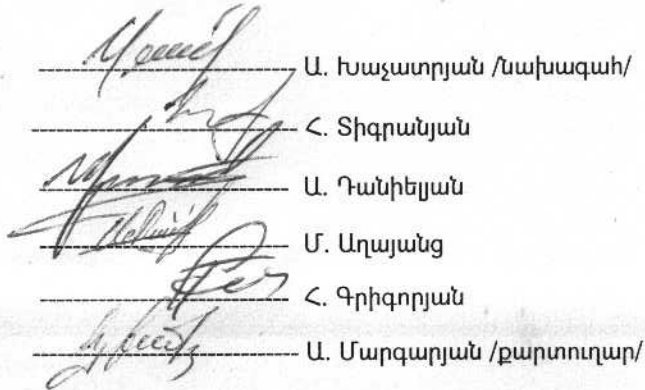 Ա. Խաչատրյան /նախագահ/
Հ. Տիգրանյան
Ա. Դանիելյան
Մ. Աղայանց
Հ. Գրիգորյան
Ա. Մարգարյան /քարտուղար/